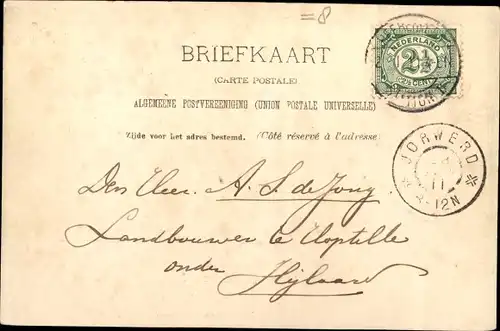 =8
NEDERLAND
2½
2½ CENT
BRIEFKAART
(CARTE POSTALE)
ALGEMEENE POSTVEREENIGING (UNION POSTALE UNIVERSELLE)
Zijde voor het adres bestemd. (Côté réservé à l'adresse)
JORWERD
11
-12N
Den Heer A. S. de Jong
Landbouwer te
onder Hijlaard